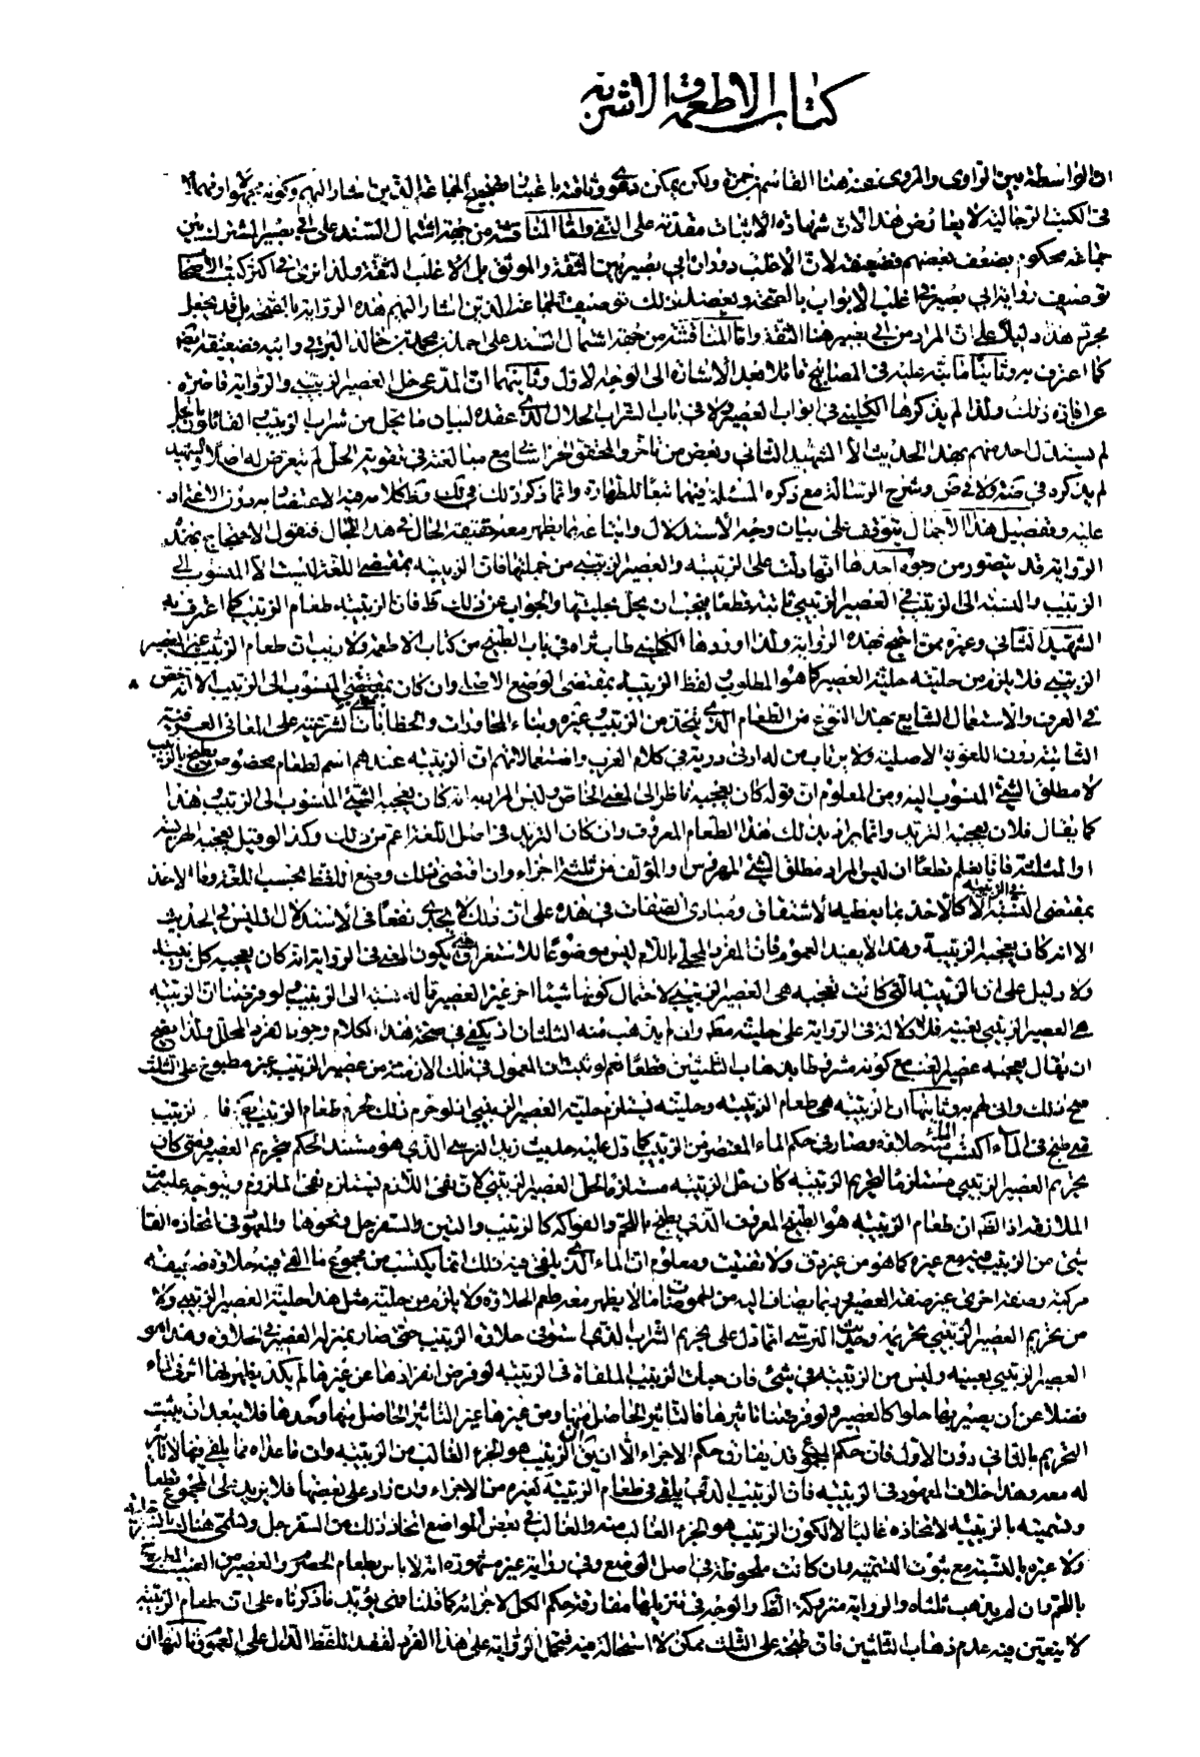 كتاب الاطعمة والاشربة
ان الواسطة بين الراوى والمروى عنه هنا القاسم بن حمزة ولكن يمكن دعوى وثاقته باعتبار
فى الكتب الرجالية لا يعارض هذا لان شهادة الاثبات مقدمة على النفى واما المناقشة من جهة اشتمال السند على ابى بصير المشترك بين
جماعة محكوم بضعف بعضهم فضعيفة لان الاغلب دوران ابى بصير بين الثقة والموثق بل الاغلب الثقة ولذا ترى فى اكثر كتب الاصحاب
توصيف رواية ابى بصير فى اغلب الابواب بالصحة ويعضد ذلك توصيف الجماعة الذين اشار اليهم هذه الرواية بالصحة بل قد يجعل
مجرد هذا دليلا على ان المراد من ابى بصير هنا الثقة واما المناقشة من جهة اشتمال السند على احمد بن محمد بن خالد البرقى وابيه فضعيفة
كما اعترف به وثانيا ما نبه عليه فى المصابيح قائلا بعد الاشارة الى الوجه الاول وثانيهما ان المدعى حل العصير الزبيبى والرواية قاصرة
عن افادة ذلك ولذا لم يذكرها الكلينى فى ابواب العصير ولا فى باب الشراب الحلال الذى عقده لبيان ما يحل من شراب الزبيب والقائلون بالحل
لم يستدل احد منهم بهذا الحديث الا الشهيد الثانى وبعض من تأخر والمحقق الخراسانى مع مبالغته فى تقوية الحل لم يتعرض له اصلا والشهيد
لم يذكره فى ولا فى وشرح الرسالة مع ذكره المسئلة فيهما تبعا للطهارة وانما ذكر ذلك فى وظ كلامه فيه الاعتضاد به دون الاعتماد
عليه وتفصيل هذا الاجمال يتوقف على بيان وجه الاستدلال واتباعه بما يظهر معه حقيقة الحال فى هذا المجال فنقول الاحتجاج بهذه
الرواية قد يتصور من وجوه احدها انها دلت على الزبيبة والعصير الزبيبى من جملتها فان الزبيبة بمقتضى اللغة ليست الا المنسوب الى
الزبيب والنسبة الى الزبيب فى العصير الزبيبى ثابتة قطعا فيجب ان يحل بحليتها والجواب عن ذلك ظ فان الزبيبة طعام الزبيب كما اعترف به
الشهيد الثانى وغيره ممن احتج بهذه الرواية ولذا اوردها الكلينى طاب ثراه فى باب الطبيخ من كتاب الاطعمة ولا ريب ان طعام الزبيب غير العصير
الزبيبى فلا يلزم من حليته حلية العصير كما هو المطلوب لفظ الزبيبة بمقتضى الوضع الاصلى وان كان بمقتضى المنسوب الى الزبيب الا انه خص
فى العرف والاستعمال الشايع بهذا النوع من الطعام الذى يتخذ من الزبيب وغيره وبناء المحاورات والخطابات الشرعية على المعانى العرفية
الثابتة دون اللغوية الاصلية ولا يرتاب من له ادنى دربة فى كلام العرب واستعمالاتهم ان الزبيبة عندهم اسم لطعام مخصوص يطبخ بالزبيب
لا مطلق الشىء المنسوب اليه ومن المعلوم ان قوله كان يعجبه ناظر الى المعنى الخاص وليس المراد به انه كان يعجبه الشىء المنسوب الى الزبيب وهذا
كما يقال فلان يعجبه الثريد وانما يراد بذلك هذا الطعام المعروف وان كان الثريد فى اصل اللغة اعم من ذلك وكذا لو قيل يعجبه الهريسة
او المثلثة فانا نعلم قطعا ان ليس المراد مطلق الشىء المهروس والمؤلف من ثلثة اجزاء وان اقتضى ذلك وضع اللفظ بحسب اللغة وما الاخذ
بمقتضى النسبة فى الزبيبة الا كالاخذ بما يعطيه الاشتقاق ومبادى الصفات فى هذه على ان ذلك لا يجدى نفعا فى الاستدلال اذ ليس فى الحديث
الا انه كان يعجبه الزبيبة وهذا لا يفيد العموم فان المفرد المحلى باللام ليس موضوعا للاستغراق حتى يكون المعنى فى الرواية انه كان يعجبه كل زبيبة
ولا دليل على ان الزبيبة التى كانت تعجبه هى العصير الزبيبى لاحتمال كونها شيئا اخر غير العصير مما له نسبة الى الزبيب ولو فرضنا ان الزبيبة
هى العصير الزبيبى بعينه فلا دلالة فى الرواية على حليته مطلقا وان لم يذهب منه الثلثان اذ يكفى فى صحة هذا الكلام وجود الفرد المحلل ولذا يصح
ان يقال يعجبه عصير العنب مع كونه مشروطا بذهاب الثلثين قطعا نعم لو ثبت ان المعمول فى تلك الازمنة من عصير الزبيب غير مطبوخ على الثلث
صح ذلك وانى لهم به وثانيها ان الزبيبة هى طعام الزبيبة وحليته تستلزم حلية العصير الزبيبى اذ لو حرم ذلك لحرم طعام الزبيب الزبيب
قد طبخ فى الماء اكتسب الماء منه حلاوة وصار فى حكم الماء المعتصر من الزبيب كما دل عليه حديث زيد النرسى الذى هو مستند الحكم بتحريم العصير فمتى كان
تحريم العصير الزبيبى مستلزما لتحريم الزبيبة كان حل الزبيبة مستلزما لحل العصير الزبيبى لان نفى اللازم يستلزم نفى الملزوم ويتوجه عليه منع
الملازمة اذ الظ ان طعام الزبيبة هو الطبيخ المعروف الذى يطبخ باللحم والفواكه كالزبيب والتين والسفرجل ونحوها والمعهود فى اتخاذه القاء
شىء من الزبيب فيه مع غيره كما هو من غير دق ولا تفتيت ومعلوم ان الماء الذى يلقى فيه ذلك انما يكتسب من مجموع ما القى فيه حلاوة ضعيفة
مركبة وصفة اخرى غير صفة العصير وربما يضاف اليه من الحموضات ما لا يظهر معه طعم الحلاوة ولا يلزم من حلية مثل هذا حلية العصير الزبيبى ولا
من تحريم العصير الزبيبى تحريمه وحديث النرسى انما دل على تحريم الشراب الذى استوفى حلاوة الزبيب حتى صار بمنزلة العصير فى الحلاوة وهذا هو
العصير الزبيبى بعينه وليس من الزبيبة فى شىء فان حبات الزبيب الملقاة فى الزبيبة لو فرض انفرادها عن غيرها لم يكد يظهر لها اثر فى الماء
فضلا عن ان يصير بها حلوا كالعصير ولو فرضنا تاثيرها فالتاثير الحاصل منها ومن غيرها غير التاثير الحاصل منها وحدها فلا يبعد ان يثبت
التحريم بالثانى دون الاول فان حكم المجموع قد يفارق حكم الاجزاء الا ان يق ان الزبيب هو الجزء الغالب من الزبيبة وان ما عداه مما يلقى فيها لا تاثير
له معه وهذا خلاف المعهود فى الزبيبة فان الزبيب الذى يلقى فى طعام الزبيبة كغيره من الاجزاء وان زاد على بعضها فلا يزيد على المجموع قطعا
وتسميته بالزبيبة لاتخاذه غالبا لا لكون الزبيب هو الجزء الغالب منه والغالب فى بعض المواضع اتخاذ ذلك من السفرجل ويسمى هناك
ولا عبرة بالنسبة مع ثبوت التسمية وان كانت ملحوظة فى اصل الوضع وفى رواية غير مشهورة انه لا باس بطعام الحصرم والعصير من العنب
باللحم وان لم يذهب ثلثاه والرواية متروكة الظ والوجه فى تنزيلها مفارقة حكم الكل لاجزائه كما قلنا فهى يؤيد ما ذكرناه على ان طعام الزبيبة
لا يتعين فيه عدم ذهاب الثلثين فان طبخه على الثلث ممكن لا استحالة فيه فتحمل الرواية على هذا الفرد لفقد اللفظ الدال على العموم وثالثها ان